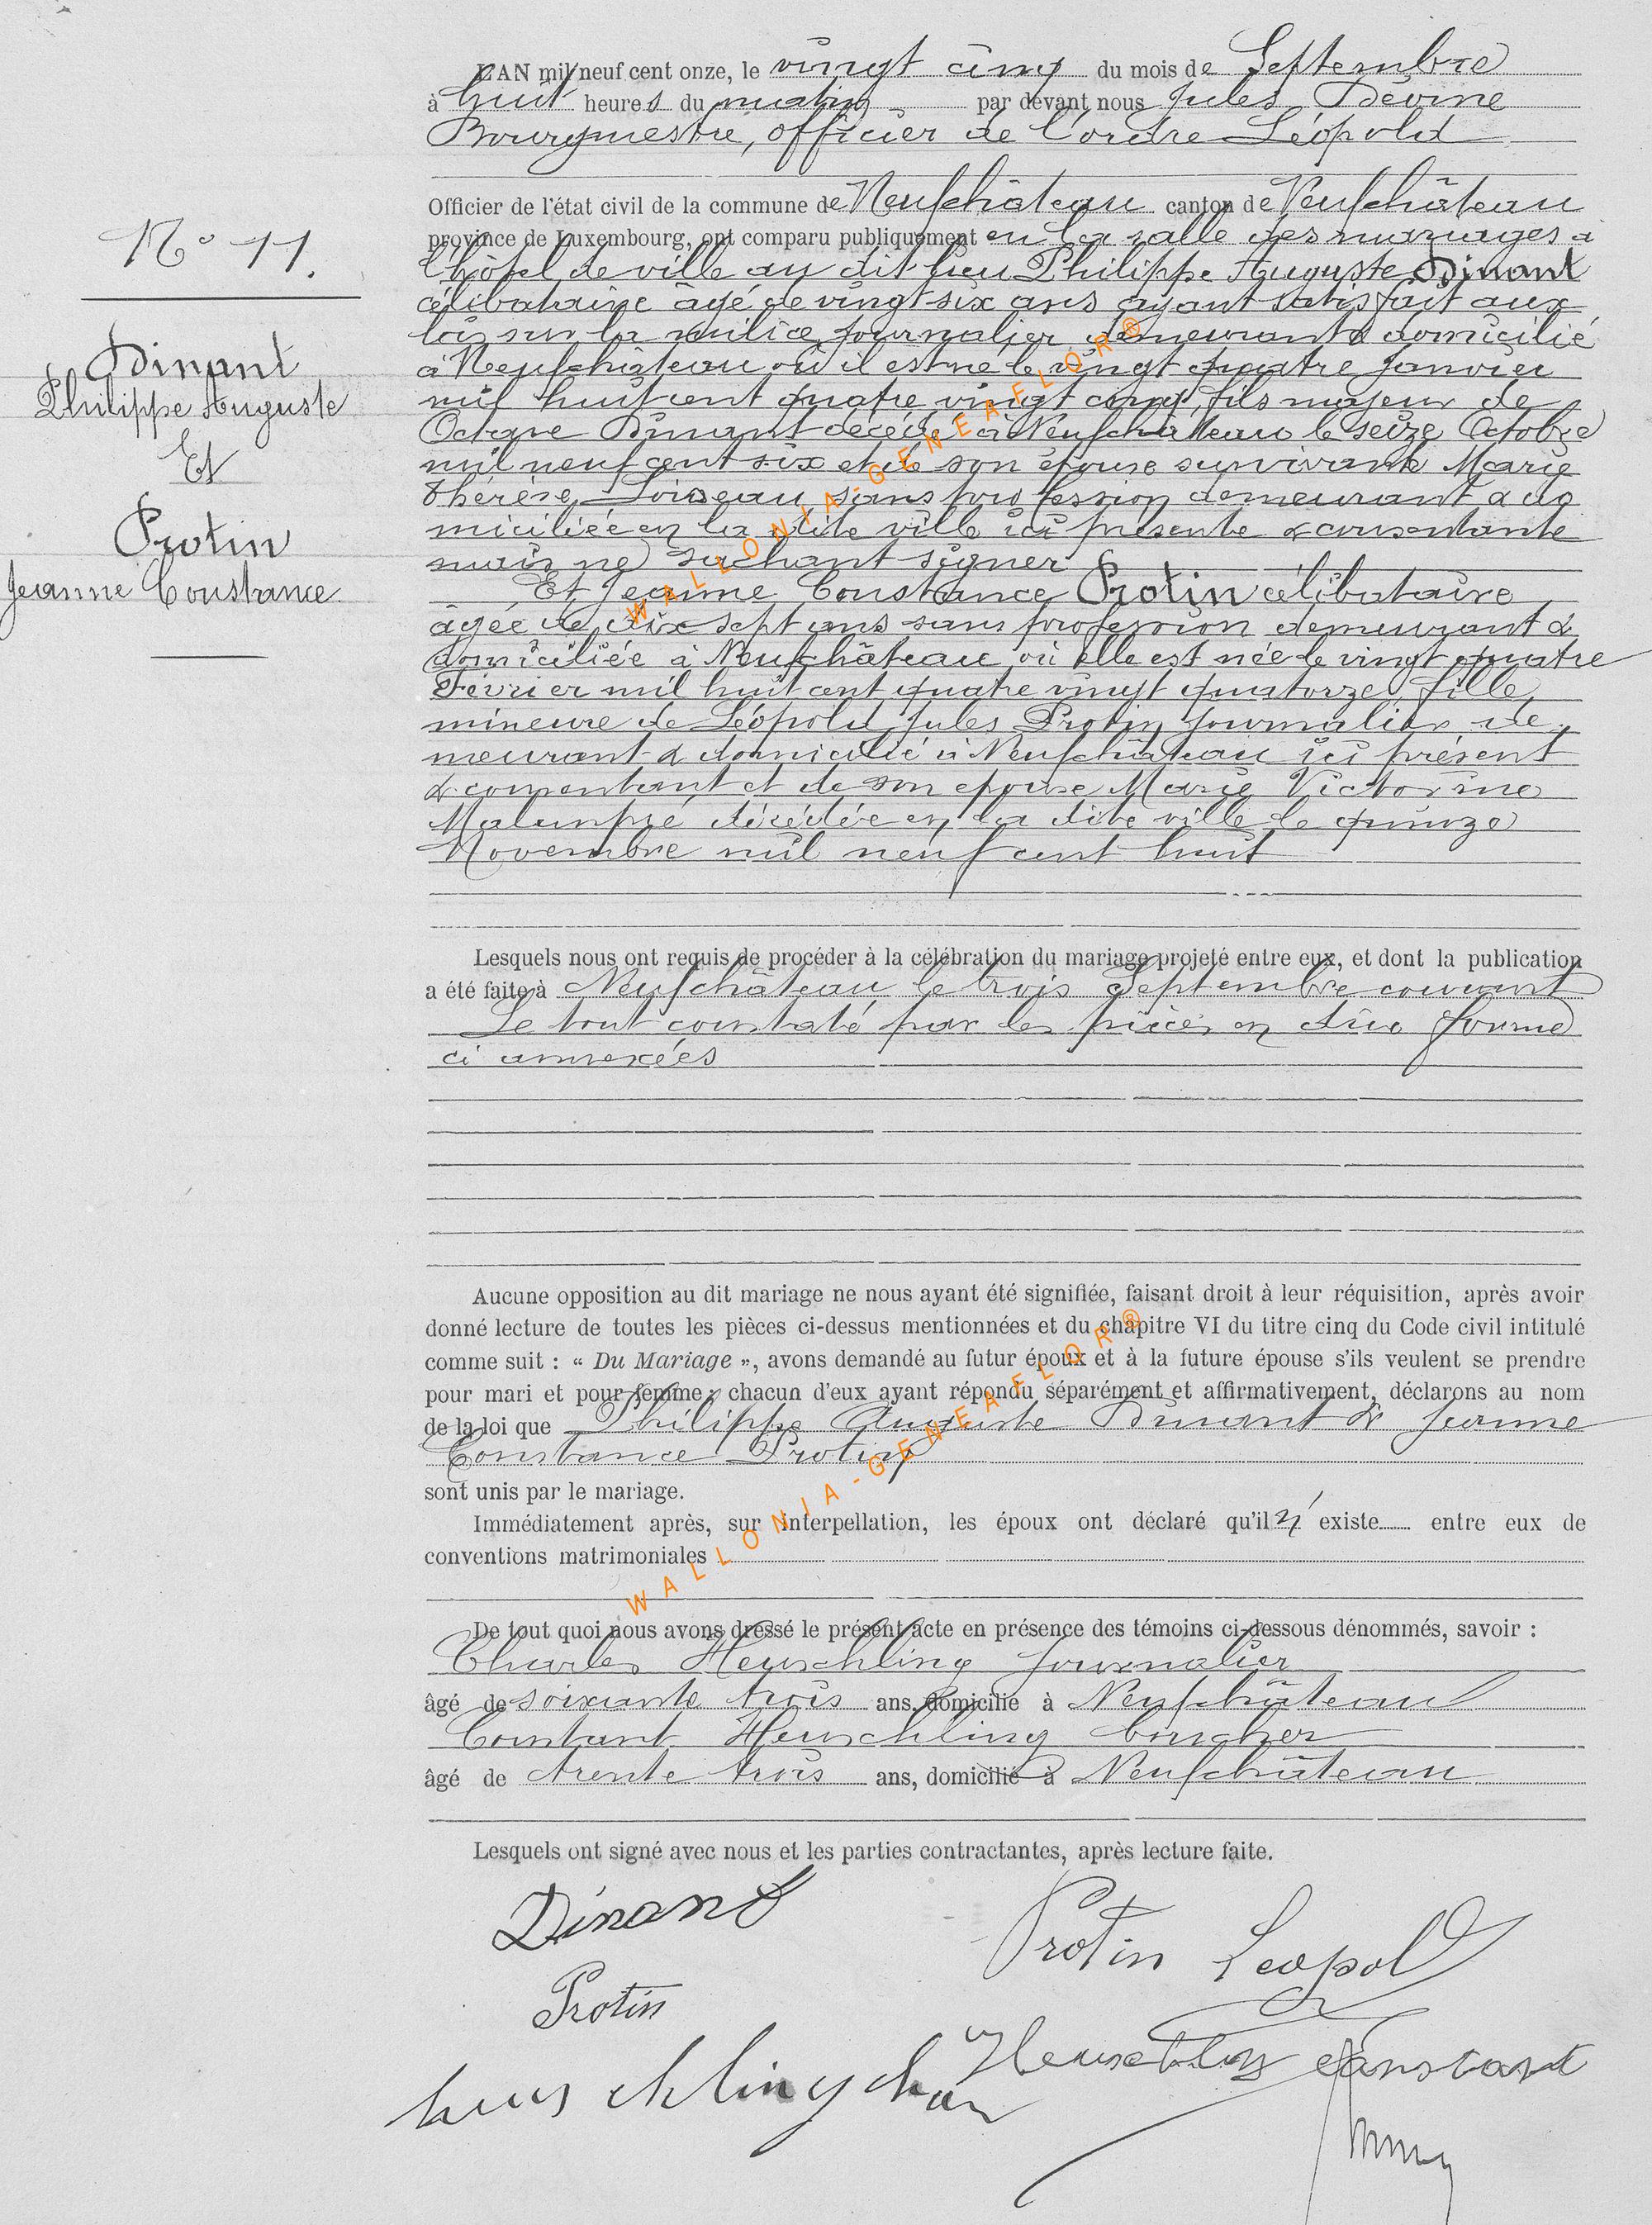 N° 11.
Dinant
Philippe Auguste
Et
Protin
Jeanne Constance
L'AN mil neuf cent onze, le vingt cinq du mois de Septembre
à huit heures du matin par devant nous Jules Devine
Bourgmestre, officier de l'ordre Léopold
Officier de l'état civil de la commune de Neufchâteau canton de Neufchâteau
province de Luxembourg, ont comparu publiquement en la salle des mariages à
l'hôtel de ville au dit lieu Philippe Auguste Dinant
célibataire âgé de vingt six ans ayant satisfait aux
lois sur la milice, journalier demeurant & domicilié
à Neufchâteau où il est né le vingt quatre Janvier
mil huit cent quatre vingt cinq, fils majeur de
Octave Dinant décédé à Neufchâteau le seize Octobre
mil neuf cent six et de son épouse survivante Marie
Thérèse Loiseau sans profession demeurant & do
miciliée en la dite ville ici présente & consentante
mais ne sachant signer
Et Jeanne Constance Protin célibataire
âgée de dix sept ans sans profession demeurant &
domiciliée à Neufchâteau où elle est née le vingt quatre
Février mil huit cent quatre vingt quatorze, fille
mineure de Léopold Jules Protin journalier de
meurant & domicilié à Neufchâteau ici présent
& consentant et de son épouse Marie Victorine
Malempré décédée en la dite ville le quinze
Novembre mil neuf cent huit
Lesquels nous ont requis de procéder à la célébration du mariage projeté entre eux, et dont la publication
a été faite à Neufchâteau le trois Septembre courant
Le tout constaté par les pièces en due forme
ci annexées
Aucune opposition au dit mariage ne nous ayant été signifiée, faisant droit à leur réquisition, après avoir
donné lecture de toutes les pièces ci-dessus mentionnées et du chapitre VI du titre cinq du Code civil intitulé
comme suit : « Du Mariage », avons demandé au futur époux et à la future épouse s'ils veulent se prendre
pour mari et pour femme ; chacun d'eux ayant répondu séparément et affirmativement, déclarons au nom
de la loi que Philippe Auguste Dinant & Jeanne
Constance Protin
sont unis par le mariage.
Immédiatement après, sur interpellation, les époux ont déclaré qu'il n' existe entre eux de
conventions matrimoniales
De tout quoi nous avons dressé le présent acte en présence des témoins ci-dessous dénommés, savoir :
Charles Heuschling journalier
âgé de soixante trois ans, domicilié à Neufchâteau
Constant Heuschling boucher
âgé de trente trois ans, domicilié à Neufchâteau
Lesquels ont signé avec nous et les parties contractantes, après lecture faite.
Dinant
Protin Leopold
Protin
Heuschling Constant
heuschling char
WALLONIA-GENEAFLOR®
WALLONIA-GENEAFLOR®